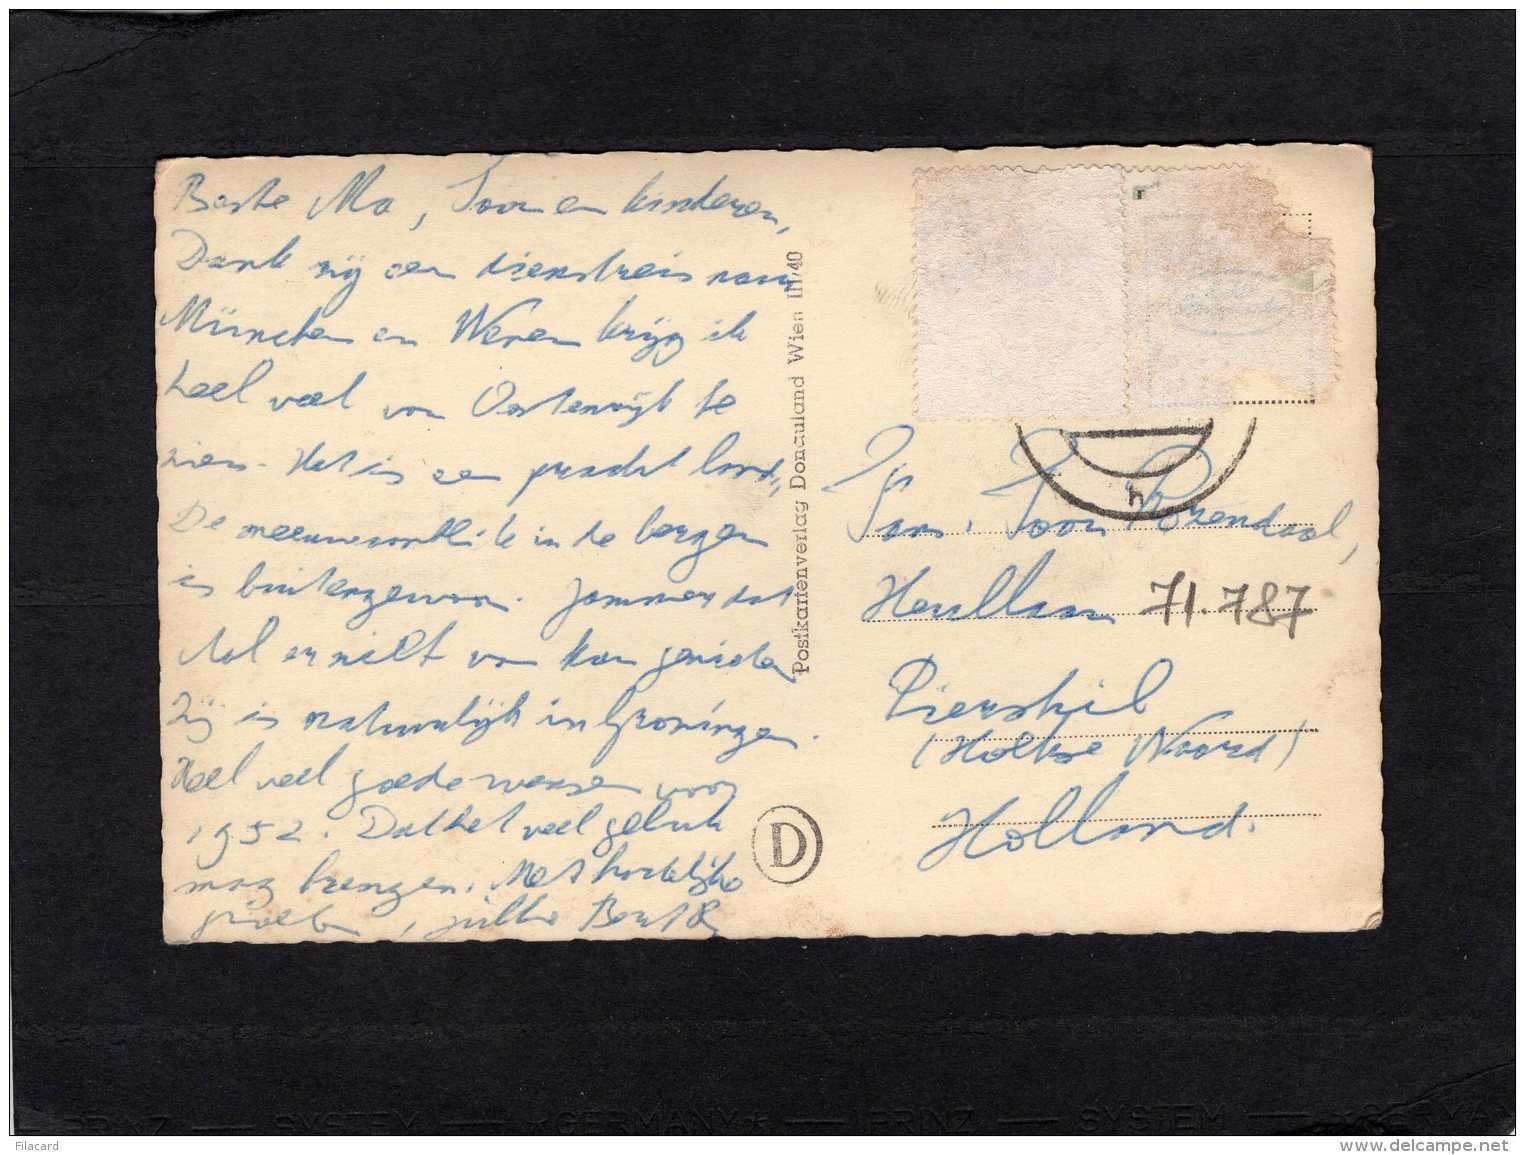 Beste Ma, Toon en kinderen,
Dank zij een dienstreis naar
München en Wenen krijg ik
heel veel van Oostenrijk te
zien. Het is een pracht land,
De sneeuw in de bergen
is buitengewoon. Jammer dat
Nel er niet van kan genieten
Zij is natuurlijk in Groningen.
Heel veel goede wensen voor
1952. Dat het veel geluk
mag brengen. Met hartelijke
groeten, jullie Bert &
Postkartenverlag Donauland Wien III/40
D
h
Fam. Toon Rozendaal,
71.787
Piershil
(Holkse Waard)
Holland.
PRINZ — SYSTEM — *GERMANY* — PRINZ — SYSTEM — *GERMANY
Filacard
delcampe.net